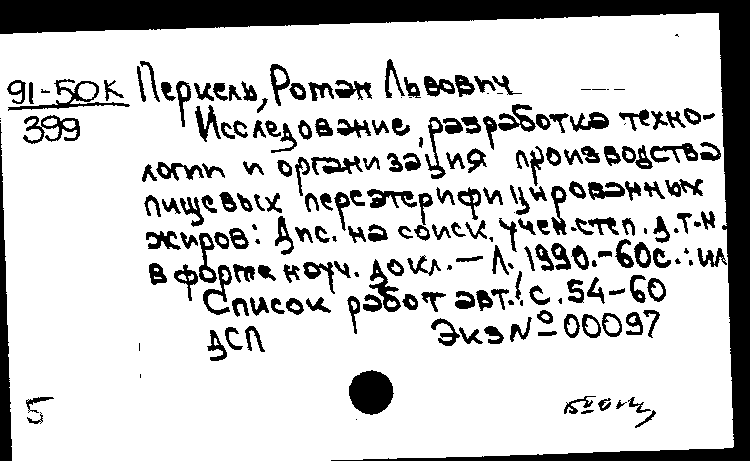 91-50К Перкель, Роман Львович
399 Исследование, разработка техно-
логии и организация производства
пищевых переэтерифицированных
жиров: Дис. на соиск. учен. степ. д.т.н.
в форме науч. докл. — Л., 1990. - 60с.: ил
Список работ авт.: с. 54-60
ДСП Экз № 00097
5